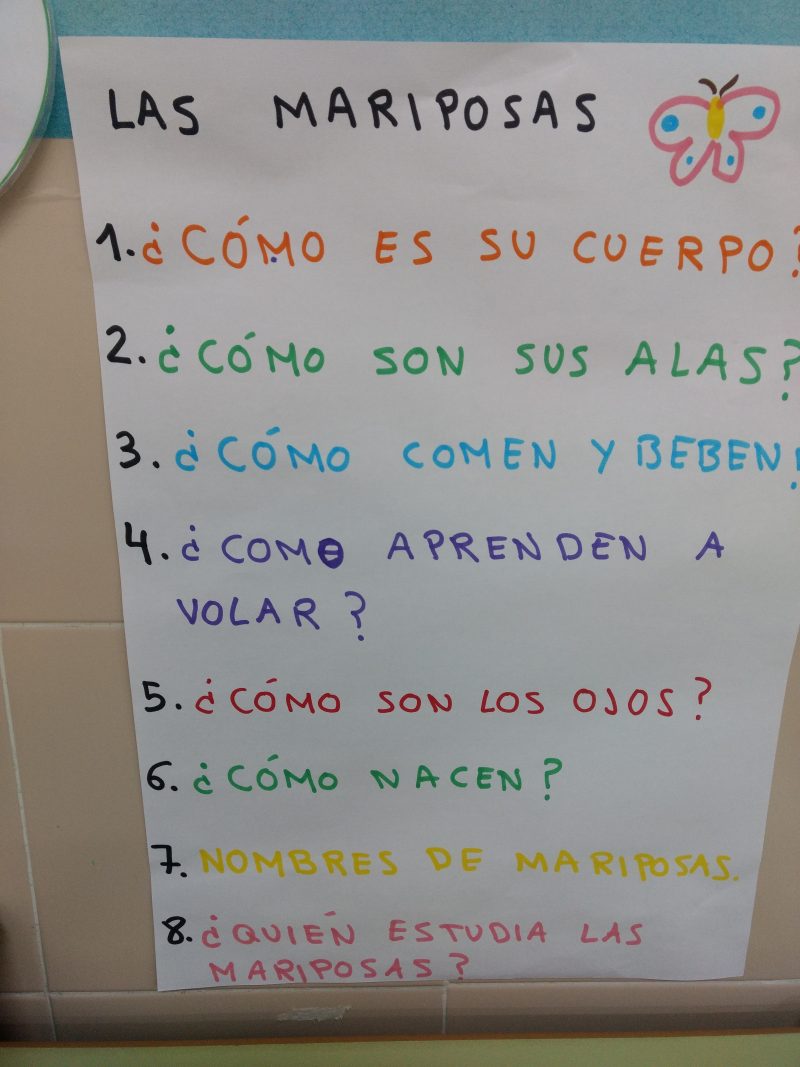 LAS MARIPOSAS
1. ¿CÓMO ES SU CUERPO?
2. ¿CÓMO SON SUS ALAS?
3. ¿CÓMO COMEN Y BEBEN?
4. ¿COMO APRENDEN A
VOLAR?
5. ¿CÓMO SON LOS OJOS?
6. ¿CÓMO NACEN?
7. NOMBRES DE MARIPOSAS.
8. ¿QUIÉN ESTUDIA LAS
MARIPOSAS?